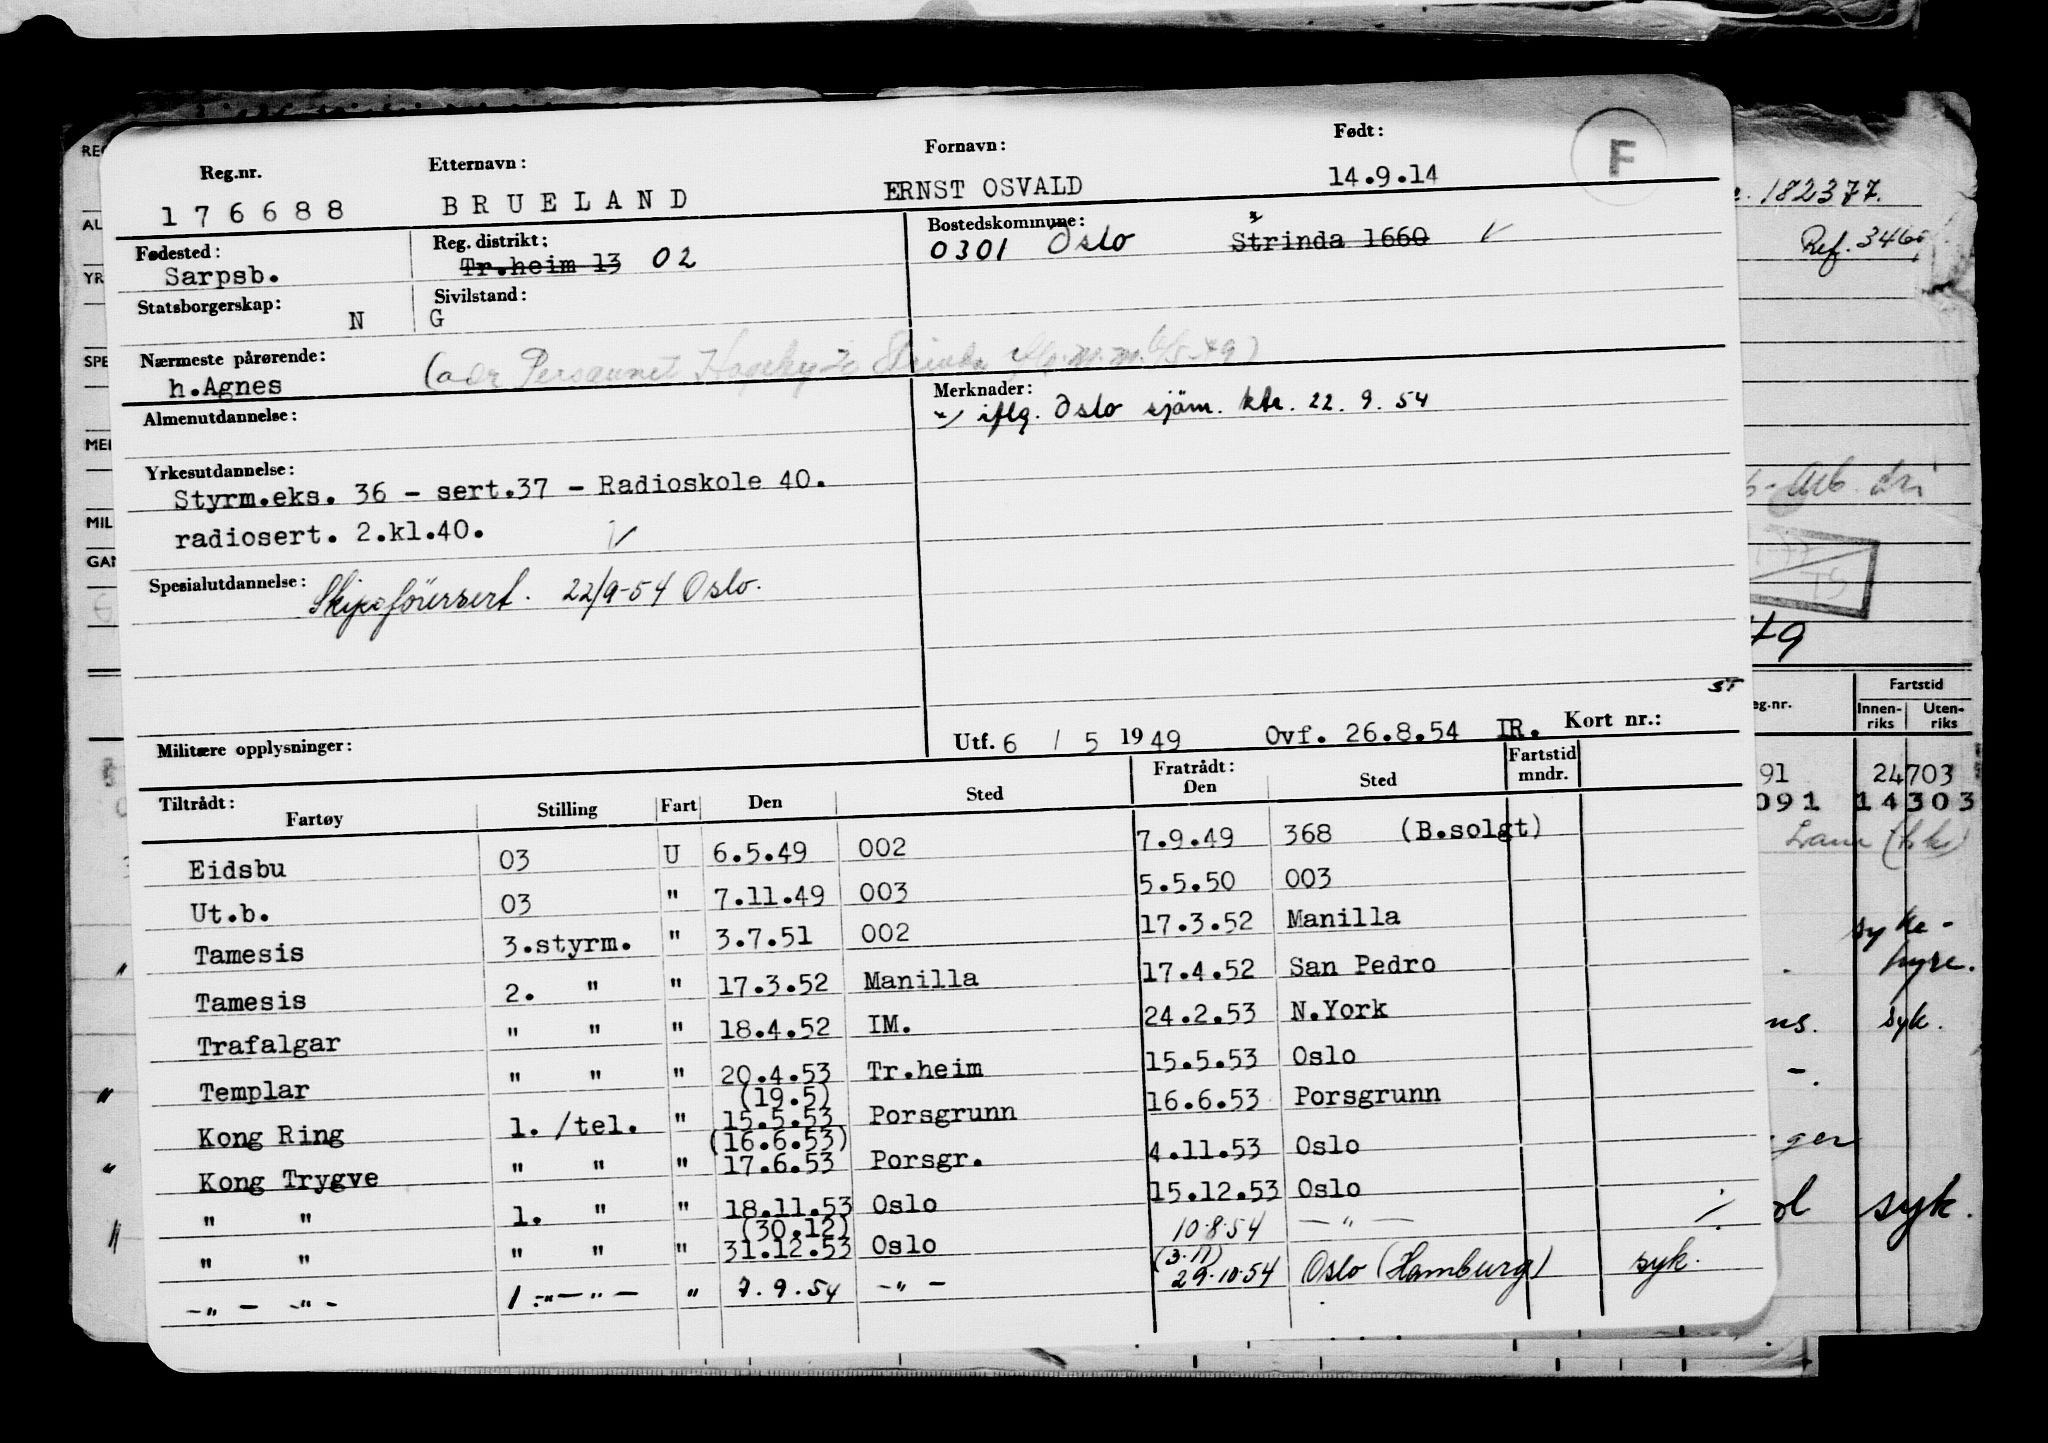 Reg.nr. Etternavn: Fornavn: Født: F
176688 BRUELAND ERNST OSVALD 14.9.14
Fødested: Reg. distrikt: Bostedskommune:
Sarpsb. Tr.heim 13 02 0301 Oslo Strinda 1660
Statsborgerskap: Sivilstand:
N G
Nærmeste pårørende:
h.Agnes
Almenutdannelse: Merknader:
x) iflg. Oslo sjöm. ktr. 22. 9. 54
Yrkesutdannelse:
Styrm.eks. 36 - sert.37 - Radioskole 40.
radiosert. 2.kl.40.
Spesialutdannelse: Skipsförersert. 22/9-54 Oslo.
ST
Militære opplysninger: Utf. 6 / 5 1949 Ovf. 26.8.54 IR. Kort nr.:
Tiltrådt: Fratrådt:
Fartøy Stilling Fart Den Sted Den Sted Fartstid mndr.
Eidsbu 03 U 6.5.49 002 7.9.49 368 (B.solgt)
Ut.b. 03 " 7.11.49 003 5.5.50 003
Tamesis 3.styrm. " 3.7.51 002 17.3.52 Manilla
Tamesis 2. " " 17.3.52 Manilla 17.4.52 San Pedro
Trafalgar " " " 18.4.52 IM. 24.2.53 N.York
Templar " " " 20.4.53 Tr.heim 15.5.53 Oslo
(19.5)
Kong Ring 1. /tel. " 15.5.53 Porsgrunn 16.6.53 Porsgrunn
(16.6.53)
Kong Trygve " " " 17.6.53 Porsgr. 4.11.53 Oslo
" " 1. " " 18.11.53 Oslo 15.12.53 Oslo
(30.12)
" " " " " 31.12.53 Oslo 10.8.54 — " —
(3.11)
-"- -"- 1.-"-"- " 7.9.54 -"- 29.10.54 Oslo (Hamburg) syk.
182377.
Ref. 3465
49
Fartstid
eg.nr. Innen-riks Uten-riks
91 24703
091 14303
syke-
hyre.
ns. syk.
syk.
REG
AL
YR
SPE
MEI
MIL
GAN